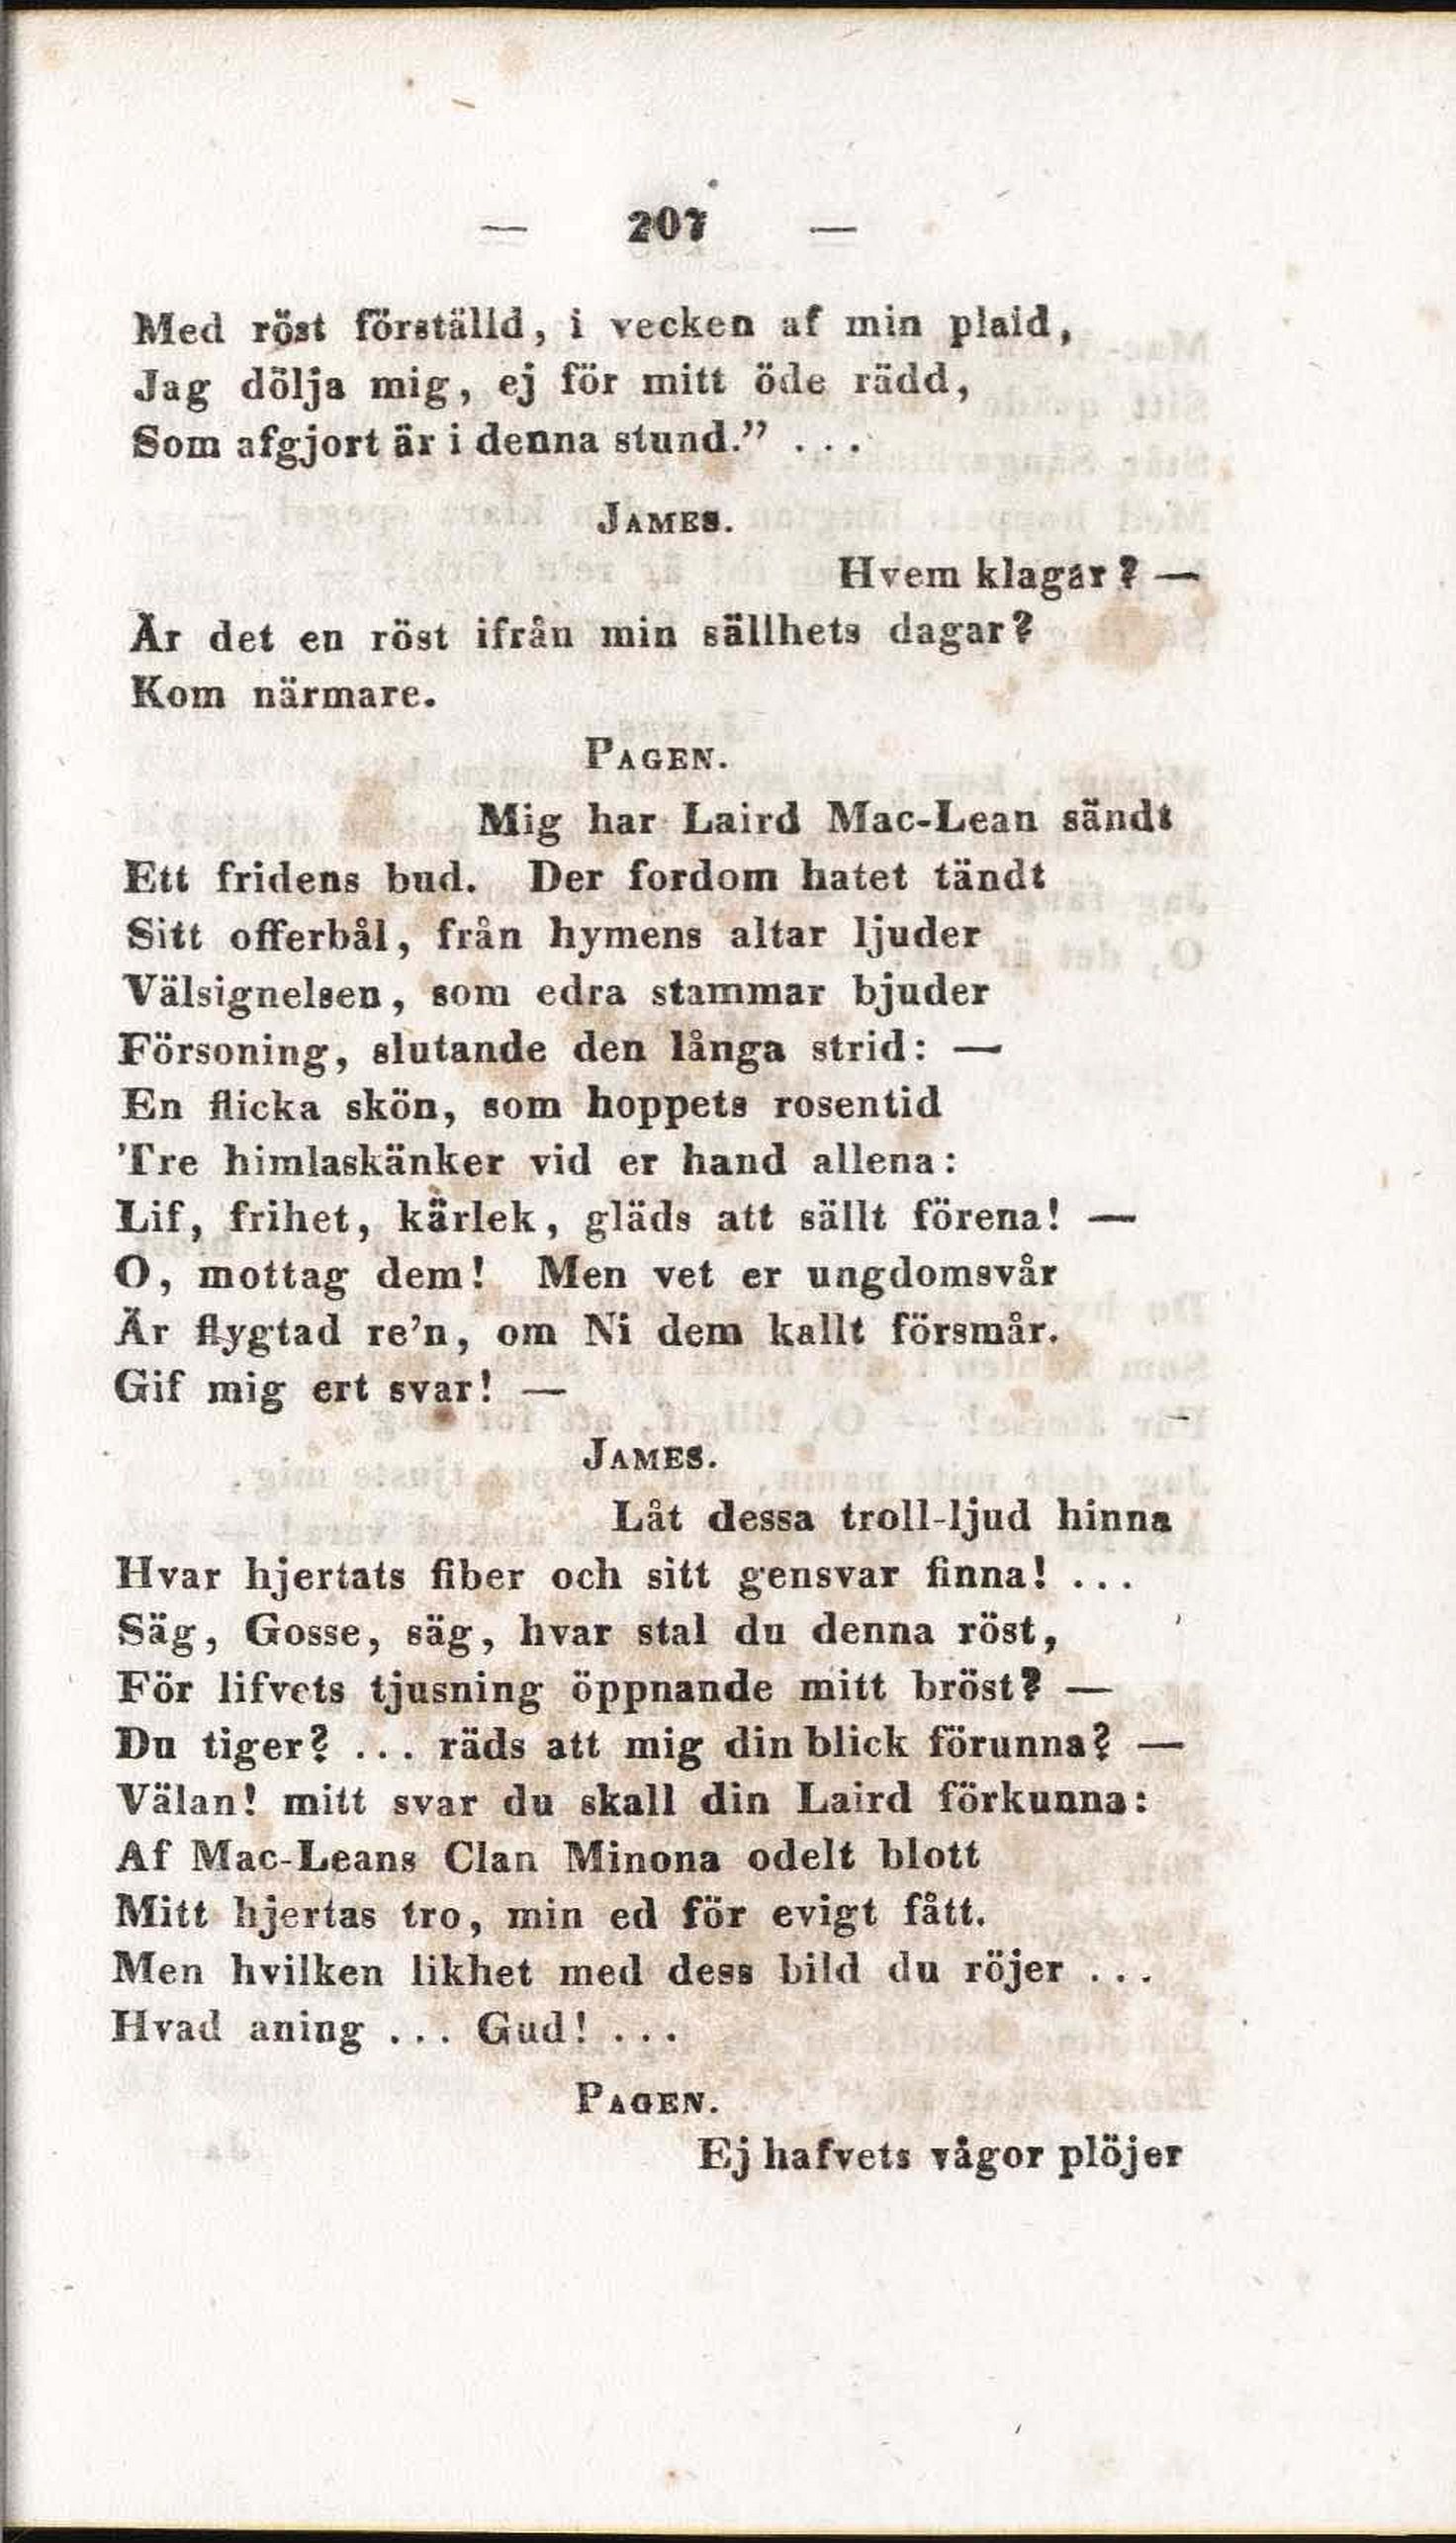 — 207 —
Med röst förställd, i vecken af min plaid,
Jag dölja mig, ej för mitt öde rädd,
Som afgjort är i denna stund.” ...
JAMES.
Hvem klagar? —
Är det en röst ifrån min sällhets dagar?
Kom närmare.
PAGEN.
Mig har Laird Mac-Lean sändt
Ett fridens bud. Der fordom hatet tändt
Sitt offerbål, från hymens altar ljuder
Välsignelsen, som edra stammar bjuder
Försoning, slutande den långa strid: —
En flicka skön, som hoppets rosentid
Tre himlaskänker vid er hand allena:
Lif, frihet, kärlek, gläds att sällt förena! —
O, mottag dem! Men vet er ungdomsvår
Är flygtad re'n, om Ni dem kallt försmår.
Gif mig ert svar! —
JAMES.
Låt dessa troll-ljud hinna
Hvar hjertats fiber och sitt gensvar finna! ...
Säg, Gosse, säg, hvar stal du denna röst,
För lifvets tjusning öppnande mitt bröst? —
Du tiger? ... räds att mig din blick förunna? —
Välan! mitt svar du skall din Laird förkunna:
Af Mac-Leans Clan Minona odelt blott
Mitt hjertas tro, min ed för evigt fått.
Men hvilken likhet med dess bild du röjer ...
Hvad aning ... Gud! ...
PAGEN.
Ej hafvets vågor plöjer